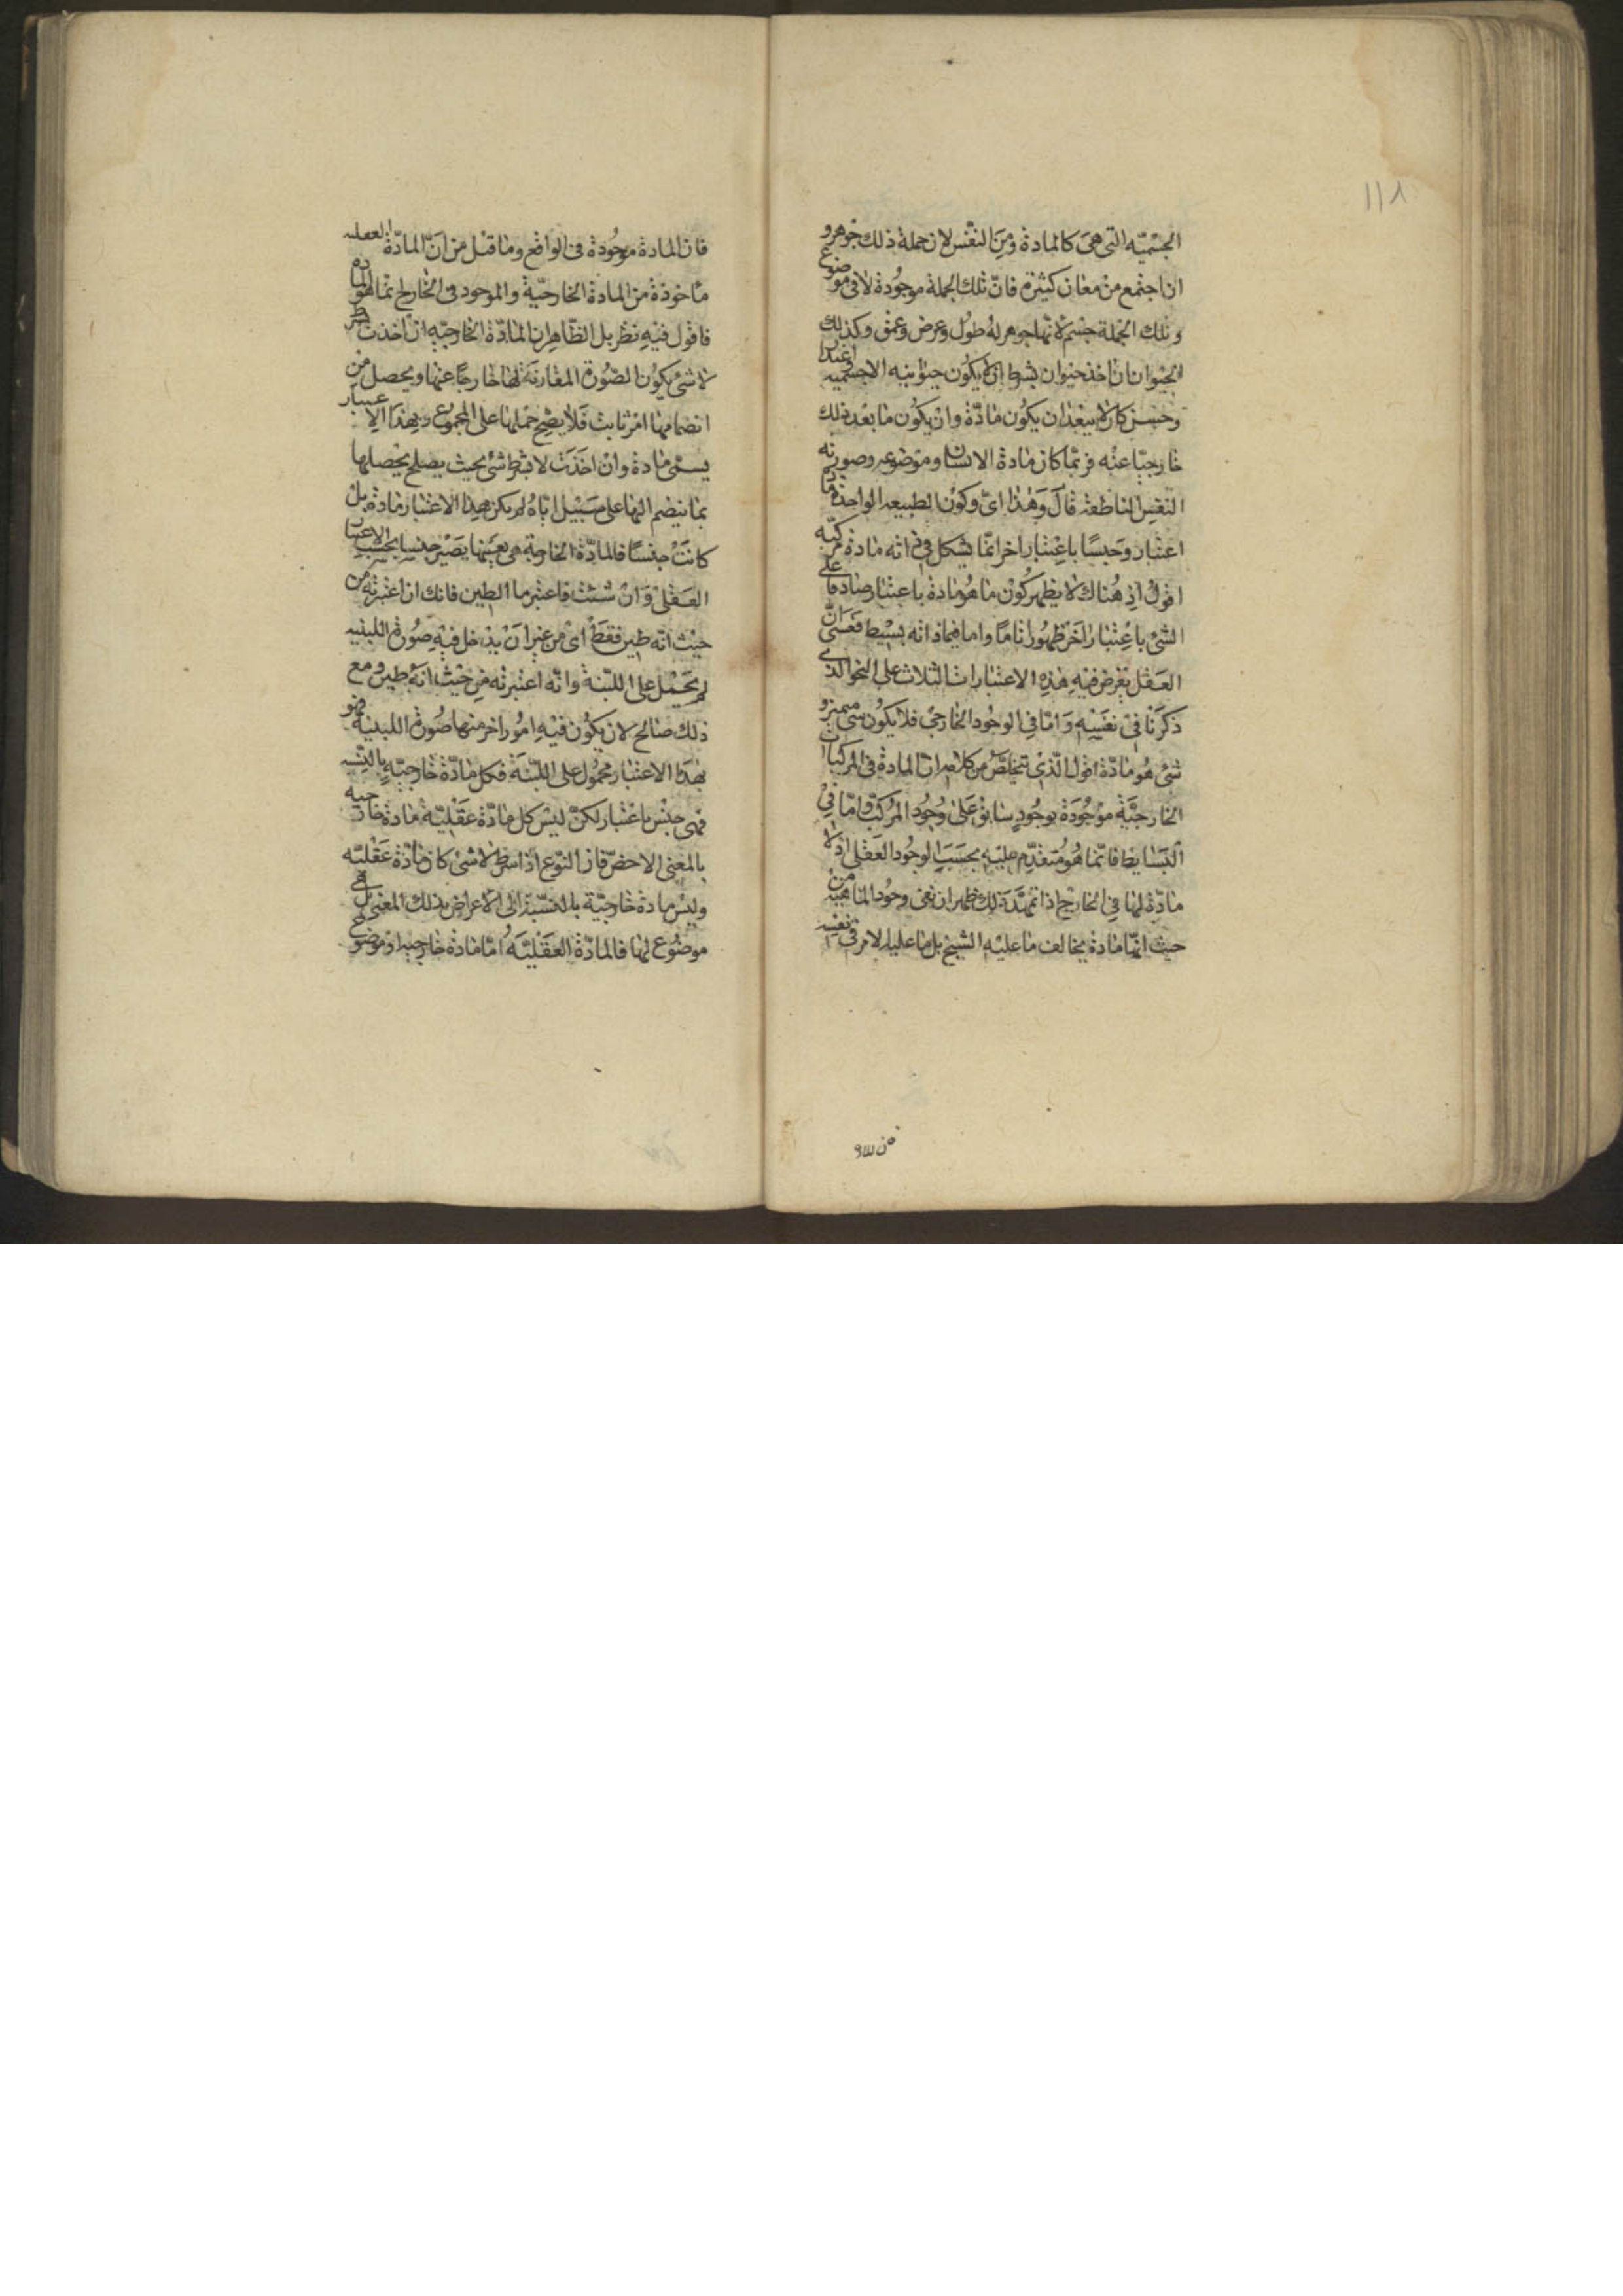 ١١٨
الجسميه التى هى كالمادة ومن النفس لان جملة ذلك جوهر و
ان اجتمع من معان كثيرة فان تلك الجملة موجودة لا فى موضوع
وتلك الجملة جسم لانها جوهر له طول وعرض وعمق وكذلك
الحيوان ان اخذ حيوان بشرط ان لا يكون حيوانيته الا جسميه
وحس كان لا يبعد ان يكون مادة وان يكون ما بعد ذلك
خارجيا عنه فربما كان مادة الانسان وموضوعه وصورته
النفس الناطقة قال وهذا اى وكون الطبيعه الواحدة
اعتبار وجنسا باعتبار اخر انما يشكل فى ذاته مادة مركبه
اقول اذ هناك لا يظهر كون ما هو مادة باعتبار صادقا على
الشئ باعتبار اخر ظهورا تاما واما فيما ذاته بسيط فعسى ان
العقل يفرض فيه هذه الاعتبارات الثلاث على النحو الذى
ذكرنا فى نفسه واما فى الوجود الخارجى فلا يكون شئ متميز و
شئ هو مادة اقول الذى تتخلص من كلامه ان المادة فى المركبات
الخارجية موجودة بوجود سابق على وجود المركب واما فى
البسايط فانما هو متقدم عليه بحسب الوجود العقلى اذ لا
مادة لها فى الخارج اذا تمهد ذلك ظهر ان نفى وجود الماهية من
حيث انها مادة يخالف ما عليه الشيخ بل ما عليه الامر فى نفسه
فان المادة موجودة فى الواقع وما قيل من ان المادة العقليه
ماخوذة من المادة الخارجية والموجود فى الخارج انما هو المادة
فاقول فيه نظر بل الظاهر ان المادة الخارجيه ان اخذت بشرط
لا شئ يكون الصورة المقارنة لها خارجا عنها ويحصل من
انضمامها امر ثابت فلا يصح حملها على المجموع وبهذا الاعتبار
يسمى مادة وان اخذت لا بشرط شئ بحيث يصلح تحصلها
بما ينضم اليها على سبيل اياه لم يكن بهذا الاعتبار مادة بل
كانت جنسا فالمادة الخارجية هى بعينها يصير جنسا بحسب الاعتبار
العقلى وان شئت فاعتبر ما الطين فانك ان اعتبرته من
حيث انه طين فقط اى من غير ان يدخل فيه صورة اللبنيه
لم يحمل على اللبنة وانه اعتبرته من حيث انه طين ومع
ذلك صالح لان يكون فيه امور اخر منها صورة اللبنية فهو
بهذا الاعتبار محمول على اللبنة فكل مادة خارجيه بالنسبه
فهى جنس باعتبار لكن ليس كل مادة عقلية مادة خارجيه
بالمعنى الاخص فان النوع اذا اشرط لا شئ كان مادة عقليه
وليس مادة خارجية بالنسبة الى الاعراض بذلك المعنى بل هى
موضوع لها فالمادة العقلية اما مادة خارجيه او موضوع